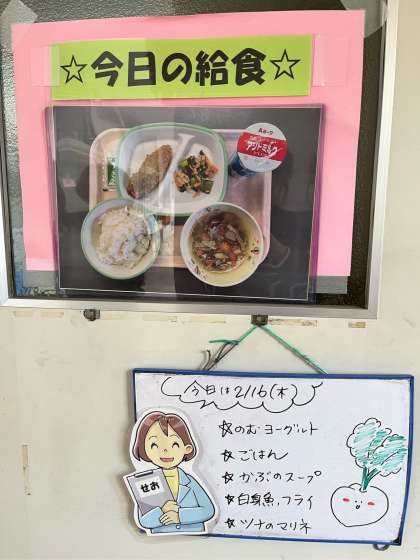 ☆今日の給食☆
今日は2/16(木)
☆のむヨーグルト
☆ごはん
☆かぶのスープ
☆白身魚フライ
☆ツナのマリネ
せお